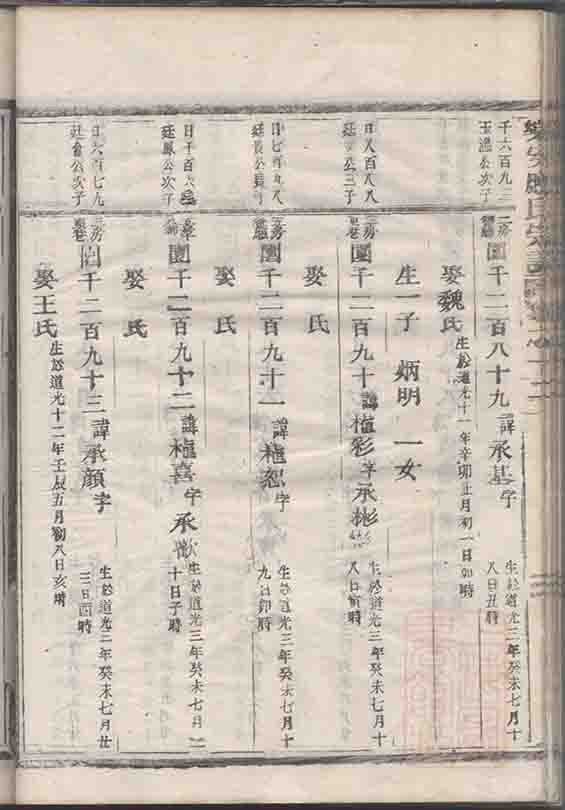 千六百九三
玉溫公次子
二房
圍千二百八十九諱承基字
生於道光三年癸未七月十
八日丑時
娶魏氏
生於道光十一年辛卯正月初一日卯時
生一子 炳明 一女
日八百八八
公三子
三房
圍千二百九十諱 彩字承彬
生於道光三年癸未七月十
八日寅時
娶 氏
日七百九八
三房
圍千二百九十一諱 恕字
生於道光三年癸未七月十
九日卯時
娶 氏
日千百六
廷鳳公次子
圍千二百九十二諱 喜字承歡
生於道光三年癸未七月二
十日子時
娶 氏
日六百七九
公次子
三房
圍千二百九十三諱承顏字
生於道光三年癸未七月廿
三日酉時
娶王氏
生於道光十二年壬辰五月初八日亥時